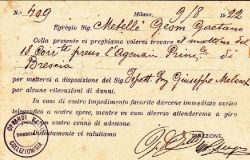 No. 409 Milano, 9/8 22
Egregio Sig. Metelli Geom Gaetano
Colla presente ci pregiamo volersi trovare il mattino del
18 Corr. presso l'Agenzia Princ. di
Brescia
per mettersi a disposizione del Sig. Giuseppe
per alcune rilevazioni di danni.
In caso di suo impedimento favorirà darcene immediato avviso
telegrafico a nostre spese, mentre in caso diverso attenderemo a giro
di posta un suo cenno di adesione.
Distintamente vi salutiamo
DIREZIONE
GRANDI
BRESCIA
COLLEZIONISTA